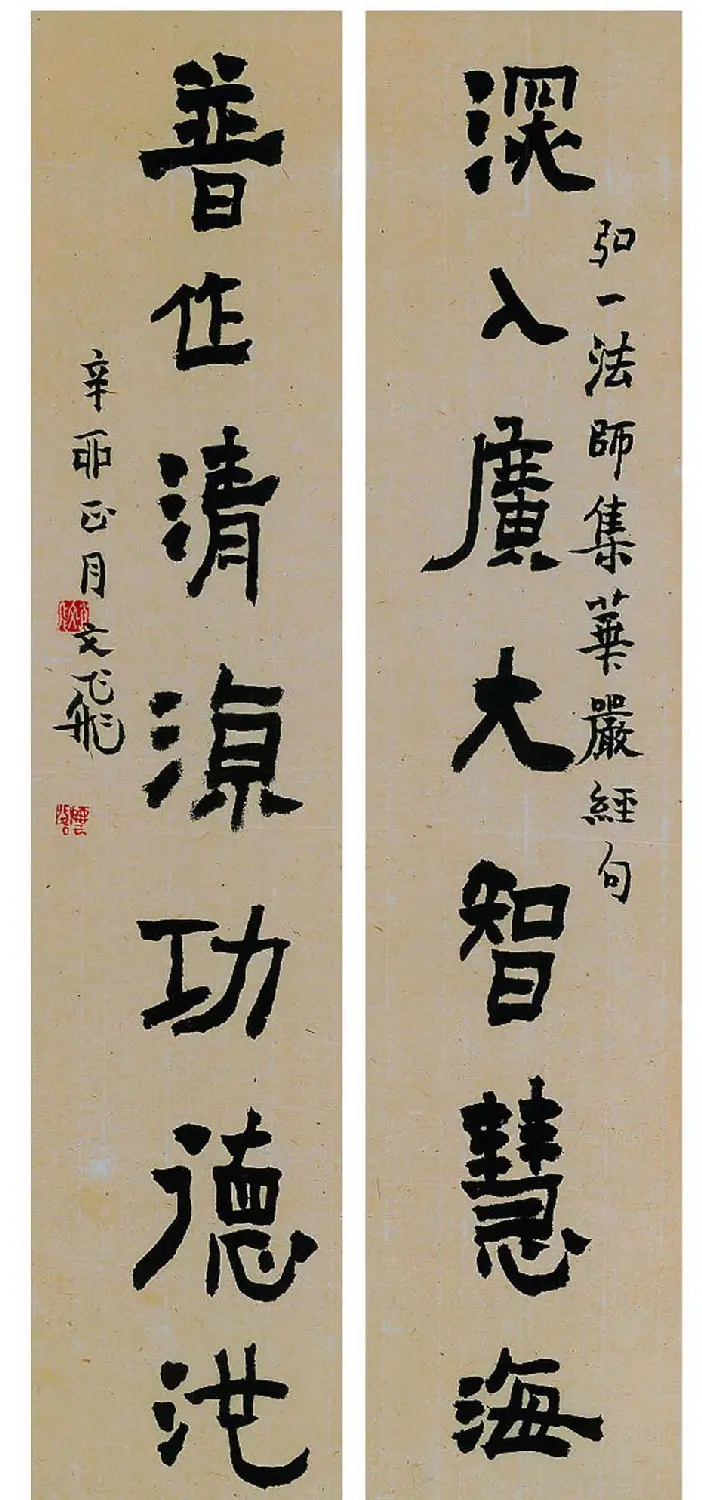 深入廣大智慧海
弘一法師集華嚴經句
普作清涼功德池
辛卯正月文飛